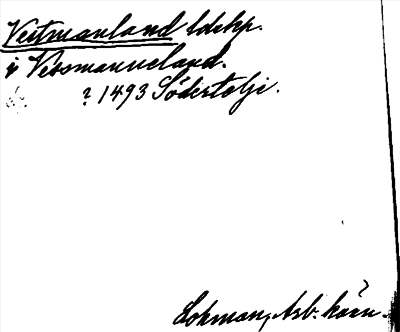 Vestmanland ldskp.
i Vessmanneland.
? 1493 Södertelje.
Lohman, Arb. kärn.